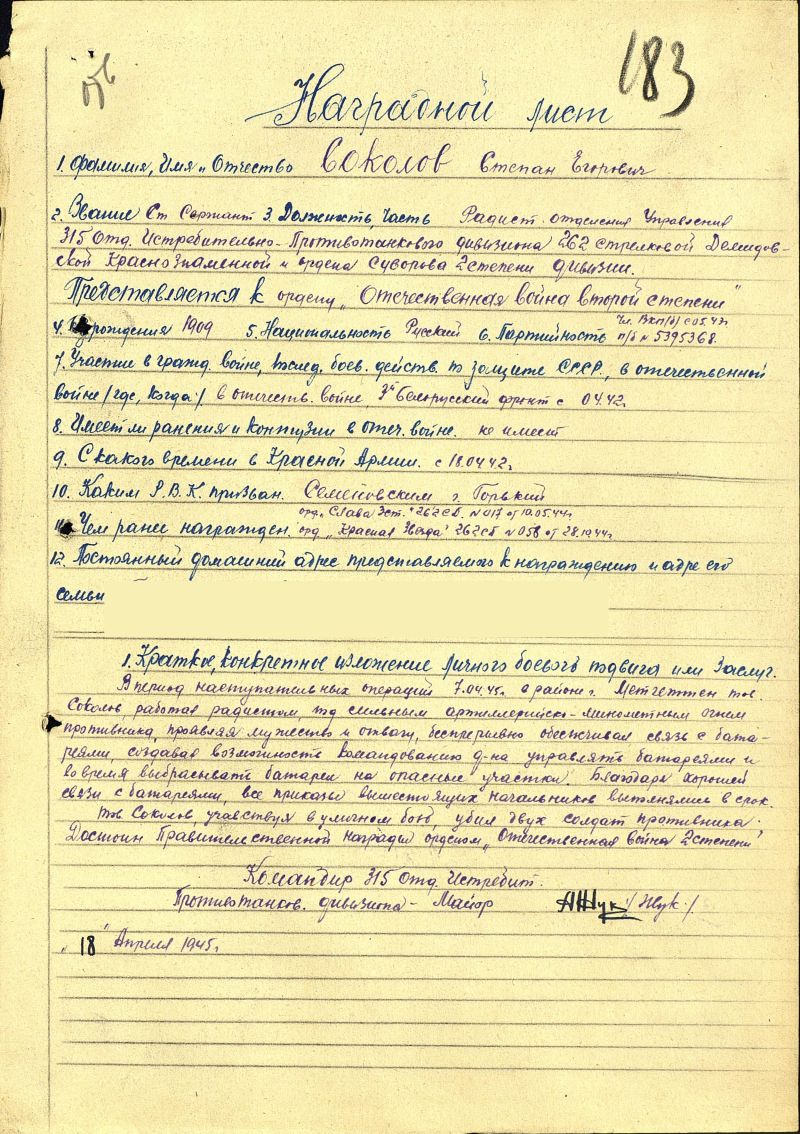 183
Наградной лист
1. Фамилия, Имя и Отчество Соколов Степан Егорович
2. Звание Ст Сержант 3. Должность, Часть Радист отделения Управления
315 Отд. Истребительно-Противотанкового дивизиона 262 стрелковой Демидов-
ской Краснознаменной и ордена Суворова 2 степени дивизии.
Представляется к ордену „Отечественная война второй степени"
4. рождения 1909 5. Национальность Русский 6. Партийность Чл. ВКП/б/ с 05.42г
п/б № 5395368.
7. Участие в гражд. войне, послед. боев. действ. по защите СССР, в отечественной
войне /где, когда/ в отечеств. войне 3й Белорусский фронт с 04.42г
8. Имеет ли ранения и контузии в отеч. войне. не имеет
9. С какого времени в Красной Армии. с 18.04.42г
10. Каким Р.В.К. призван. Семеновским г. Горький
орд. „Слава 3 ст." 262 СД № 017 от 19.05.44г
11. Чем ранее награжден. орд. „Красная Звезда" 262 СД № 058 от 28.10.44г
12. Постоянный домашний адрес представляемого к награждению и адре его
семьи
1. Краткое, конкретное изложение личного боевого подвига или заслуг.
В период наступательных операций 7.04.45г. в районе г. Метгеттен тов.
Соколов работая радистом, под сильным артиллерийско-минометным огнем
противника, проявляя мужество и отвагу, беспрерывно обеспечивал связь с бата-
реями, создавая возможность командованию д-на управлять батареями и
во время выбрасывать батареи на опасные участки. Благодаря хорошей
связи с батареями, все приказы вышестоящих начальников выполнялись в срок.
Тов Соколов, учавствуя в уличном бою, убил двух солдат противника.
Достоин Правительственной награды орденом „Отечественная война 2 степени"
Командир 315 Отд. Истребит.
Противотанков. дивизиона - Майор АЖук /Жук/
„18" Апреля 1945г.